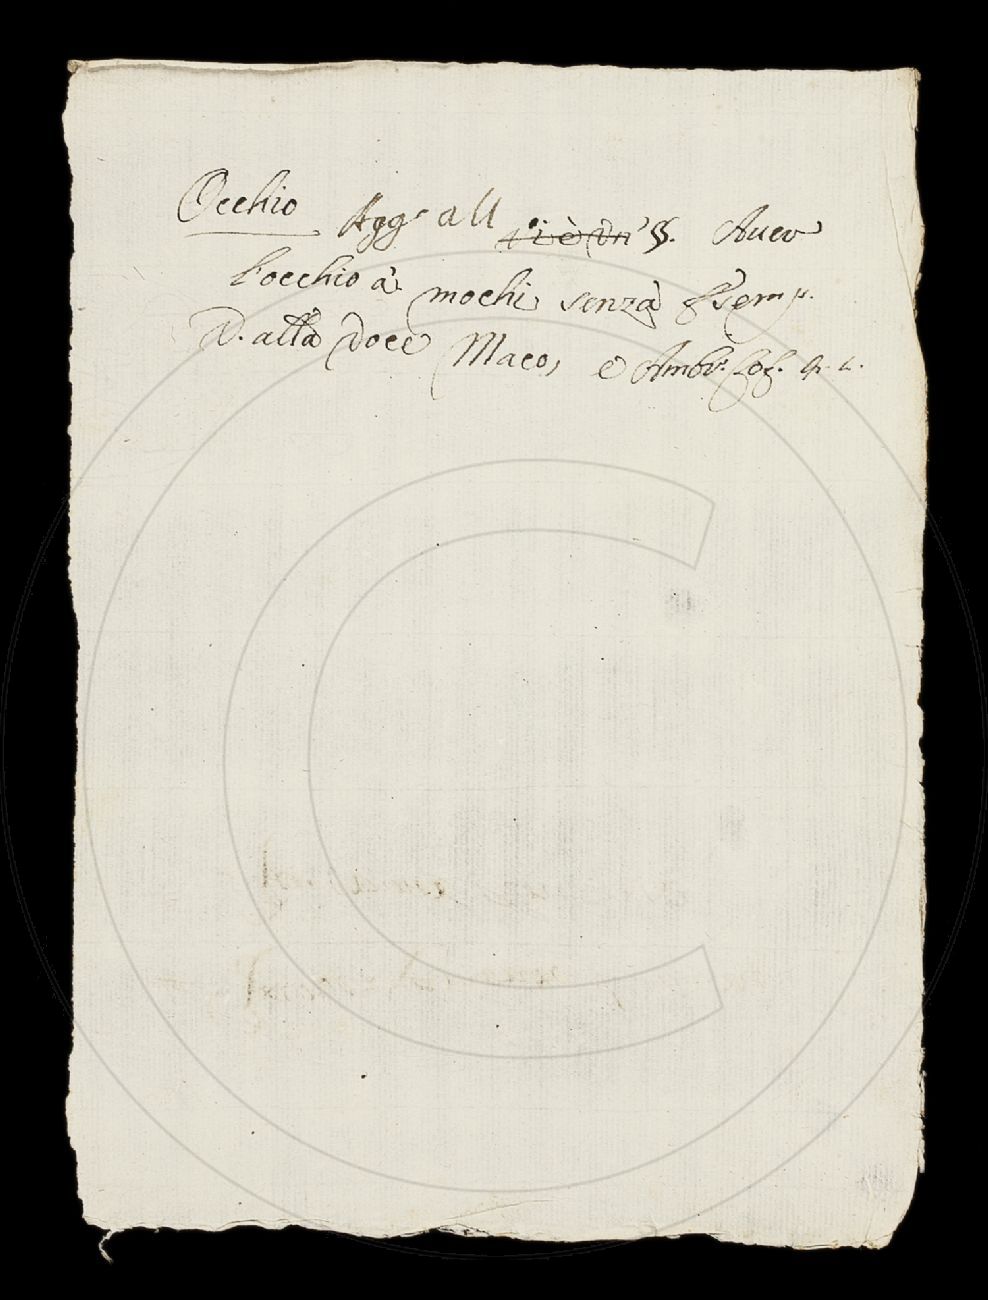 Occhio Agg. all §. Aver
l'occhio a' mochi senza Esemp.
D. alla voce Maco, e Ambr. Cof. 4. 2.